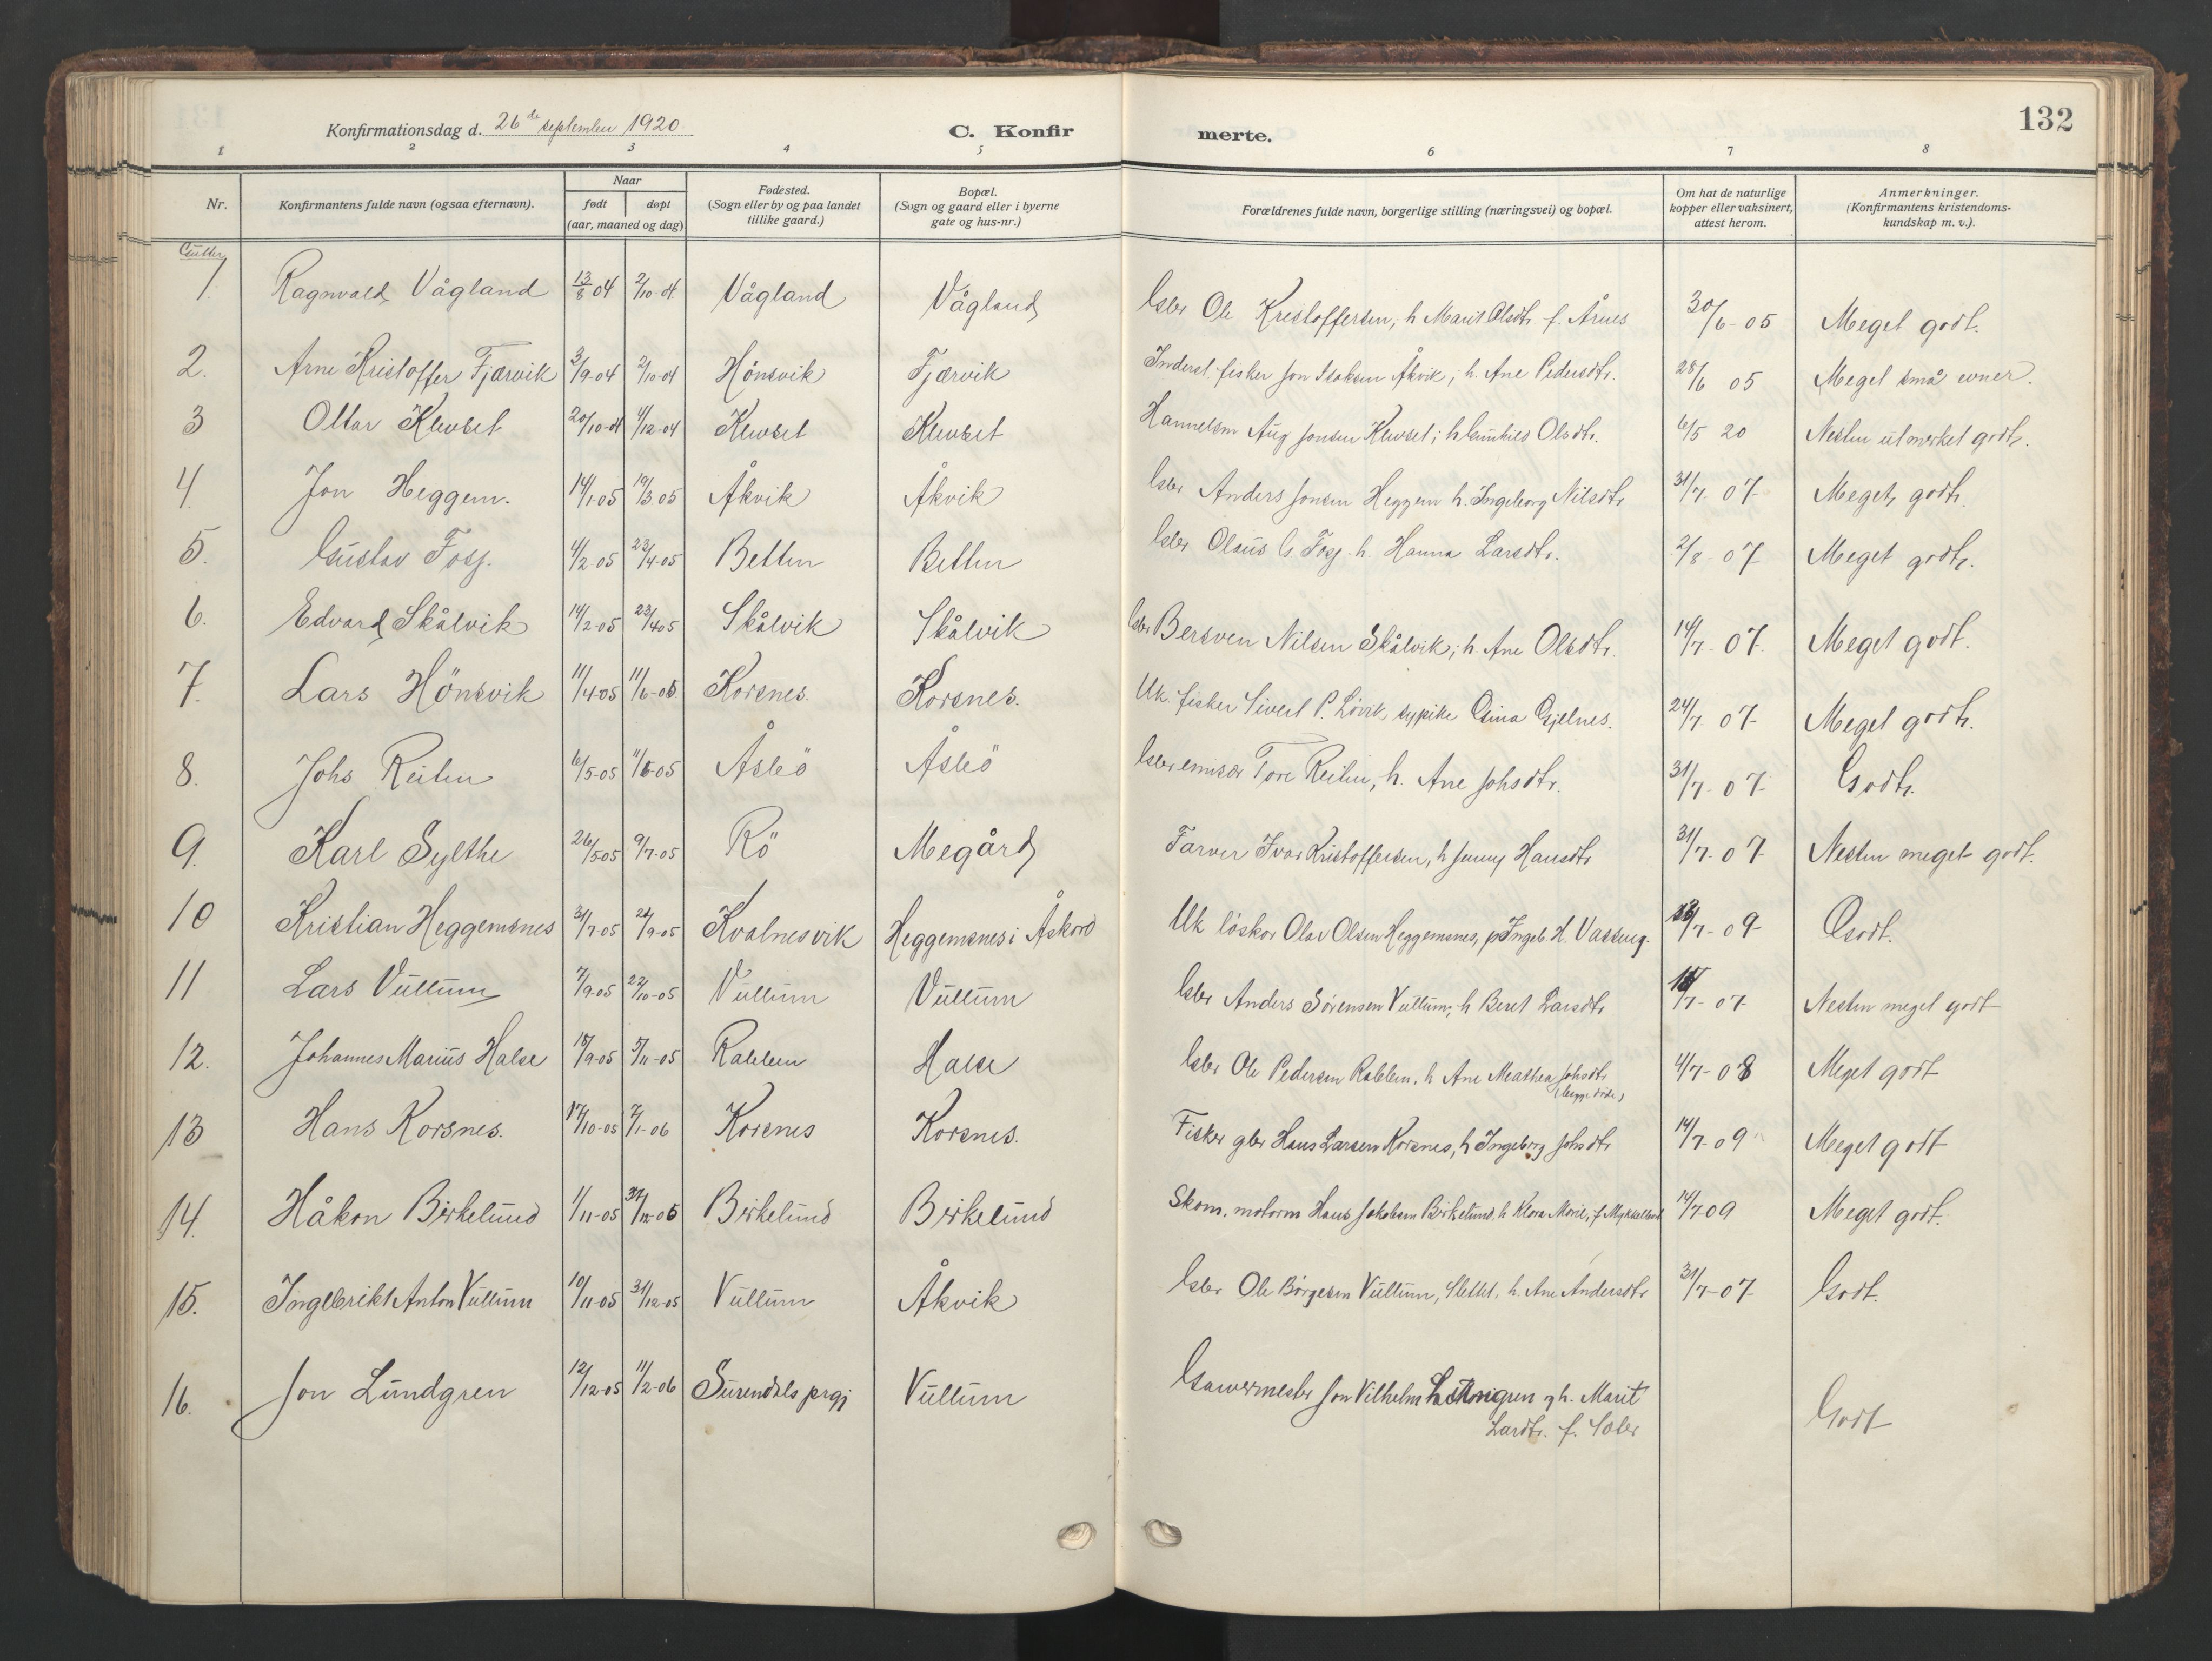 132
Konfirmationsdag d. 26de september 1920
C. Konfir merte.
1 2 3 4 5 6 7 8
Nr.
Konfirmantens fulde navn (ogsaa efternavn).
Naar
født døpt
(aar, maaned og dag)
Fødested.
(Sogn eller by og paa landet
tillike gaard.)
Bopæl.
(Sogn og gaard eller i byerne
gate og hus-nr.)
Forældrenes fulde navn, borgerlige stilling (næringsvei) og bopæl.
Om hat de naturlige
kopper eller vaksinert,
attest herom.
Anmerkninger.
(Konfirmantens kristendoms-
kundskap m. v.).
Gutter
1. Ragnvald Vågland 13/8 04 2/10-04 Vågland Vågland Gbr Ole Kristoffersen, h Marit Olsdtr f. Årnes 30/6-05 Meget godt.
2. Arne Kristoffer Fjærvik 3/9-04 2/10-04 Hönsvik Fjærvik Inderst. fisker Jon Isaksen Åkvik; h. Ane Pedersdtr. 28/6 05 Meget små evner.
3 Ottar Klevset 20/10-04 4/12-04 Klevset Klevset Aug Jonsen Klevset; h Olsdtr. 6/5 20 Nesten utmerket godt.
4. Jon Heggem. 14/1 05 19/3 05 Åkvik Åkvik Gbr Anders Jonsen Heggem h. Ingeborg Nilsdtr 31/7-07 Meget godt.
5. Gustav Fosj. 4/2-05 23/4-05 Betten Betten Gbr Olaus G Fosj. h. Hanna Larsdtr. 2/8-07 Meget godt.
6. Edvard Skålvik 14/2-05 23/4 05 Skålvik Skålvik Gbr Bersven Nilsen Skålvik; h. Ane Olsdtr. 14/7-07 Meget godt.
7. Lars Hönsvik 11/4-05 11/6-05. Korsnes. Korsnes. Uk. fisker Sivert P. Lövik sypike Gina Gjelnes. 24/7 07 Meget godt.
8. Johs Reiten 6/5-05 11/6-05 Åsbö Åsbö Gbr emisær Tore Reiten, h. Ane Johsdtr. 31/7-07 Godt.
9. Karl Sylthe 26/5 05 9/7-05 Rö Megård Farver Ivar Kristoffersen, h Jenny Hansdtr 31/7-07 Nesten meget godt.
10 Kristian Heggemsnes 31/7-05 24/9-05 Kvalnesvik Heggemsnes i Åskard Uk löskar Olav Olsen Heggemsnes, p Ingeb. H. /7-09 Godt.
11 Lars Vullum 7/9-05 22/10-05 Vullum Vullum Gbr Anders Sörensen Vullum, h Beret Larsdtr /7-07 Nesten meget godt
12. Johannes Marius Halse 18/9-05 5/11-05 Rabben Halse Gbr Ole Pedersen Rabben. h Ane Mathea Johsdtr 4/7-08 Meget godt
(begge döde)
13 Hans Korsnes. 17/10-05 7/1-06 Korsnes Korsnes. Fisker gbr Hans Larsen Korsnes, h Ingeborg Johsdtr 14/7-09 Meget godt
14. Håkon Birkelund 1/11-05 /12-05 Birkelund Birkelund Skom. motorm Hans Jakobsen Birkelund, h Klara Marie, f. 14/7 09 Meget godt.
15. Ingebrikt Anton Vullum 10/11-05 31/12-05 Vullum Åkvik Gbr Ole Börgesen Vullum, Slettet, h. Ane Andersdtr 31/7-07 Godt.
16. Jon Lundgren 12/12-05 11/2-06 Surendals prgj Vullum Garvermester Jon Vilhelm og h. Marit Godt
Larsdtr. f.